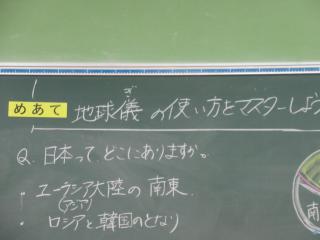 めあて 地球儀の使い方をマスターしよう
Q. 日本って、どこにありますか。
・ユーラシア大陸の南東
(アジア)
・ロシアと韓国のとなり
南